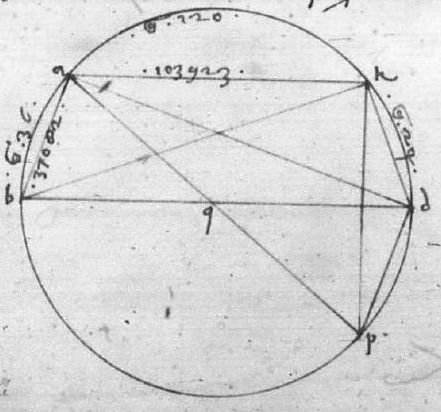 G.120.
a .103923. k
G.36.
.37082.
G.24.
b q d
p